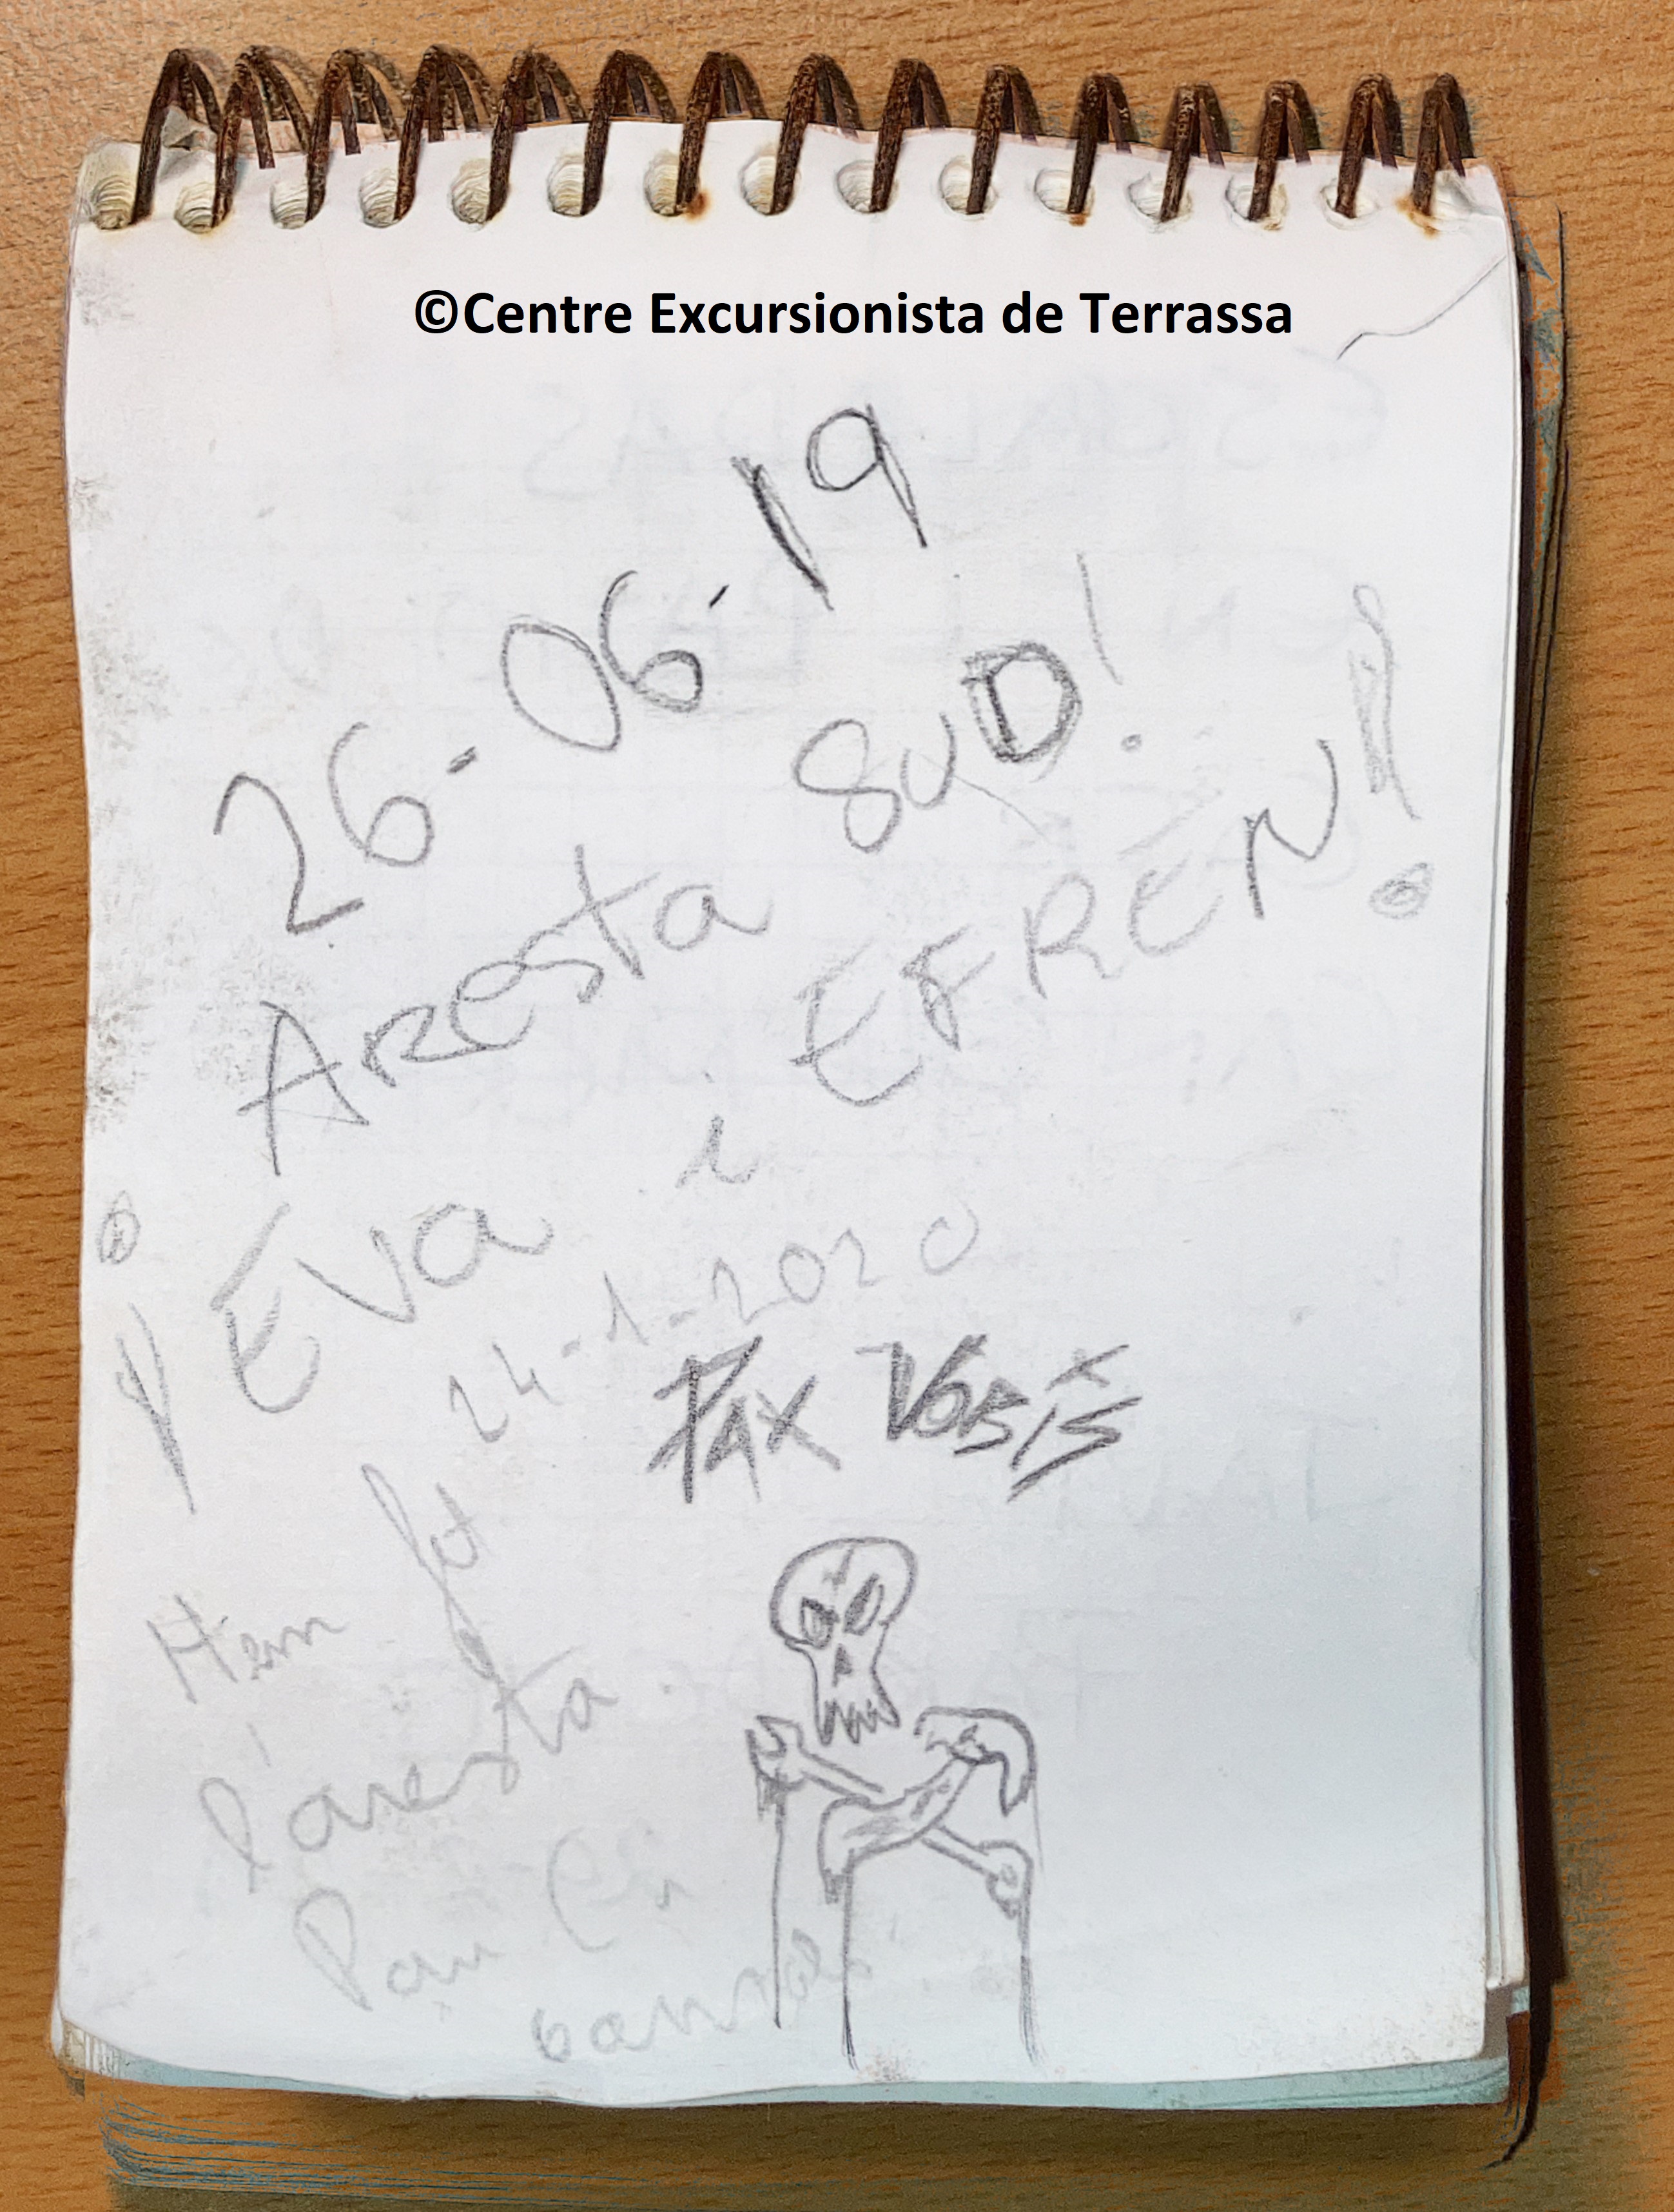 ©Centre Excursionista de Terrassa
26-06-19
Aresta SUD!
¡Eva i EFREN!
24-1-2020
PAX VOBIS
Hem fet
l'aresta
Pau